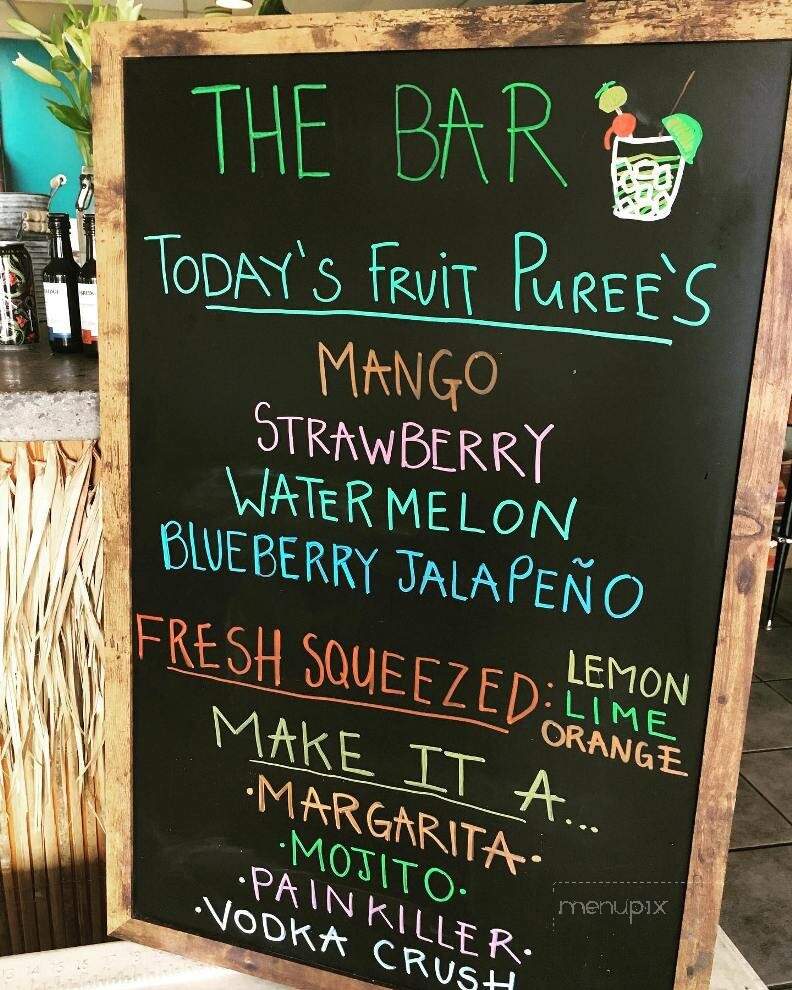 THE BAR
TODAY'S FRUIT PUREE'S
MANGO
STRAWBERRY
WATERMELON
BLUEBERRY JALAPEÑO
FRESH SQUEEZED: LEMON
LIME
ORANGE
MAKE IT A...
·MARGARITA·
·MOJITO·
·PAINKILLER·
·VODKA CRUSH
menupix